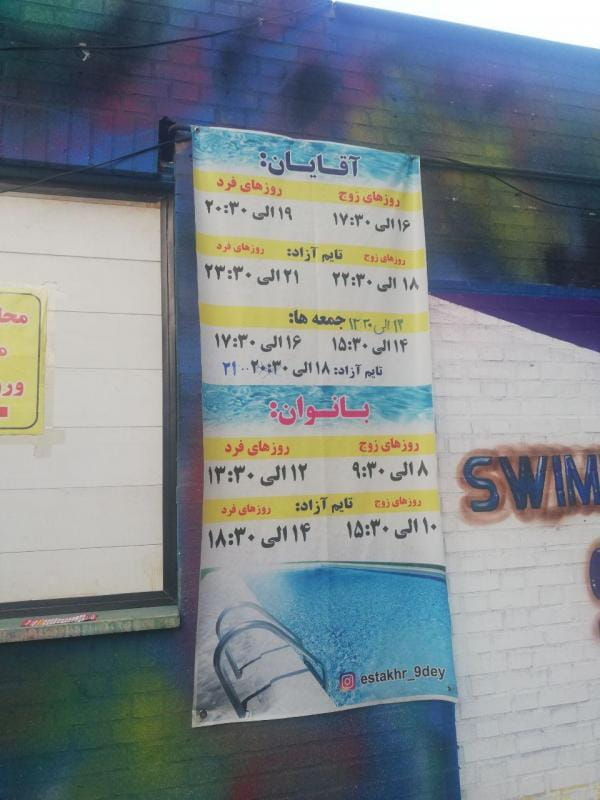 آقایان:
روزهای زوج روزهای فرد
۱۶ الی ۱۷:۳۰ ۱۹ الی ۲۰:۳۰
روزهای زوج تایم آزاد: روزهای فرد
۱۸ الی ۲۲:۳۰ ۲۱ الی ۲۳:۳۰
جمعه ها:
۱۴ الی ۱۵:۳۰ ۱۶ الی ۱۷:۳۰
تایم آزاد: ۱۸ الی ۲۰:۳۰
بانوان:
روزهای زوج روزهای فرد
۸ الی ۹:۳۰ ۱۲ الی ۱۳:۳۰
روزهای زوج تایم آزاد: روزهای فرد
۱۰ الی ۱۵:۳۰ ۱۴ الی ۱۸:۳۰
estakhr_9dey
SWIM